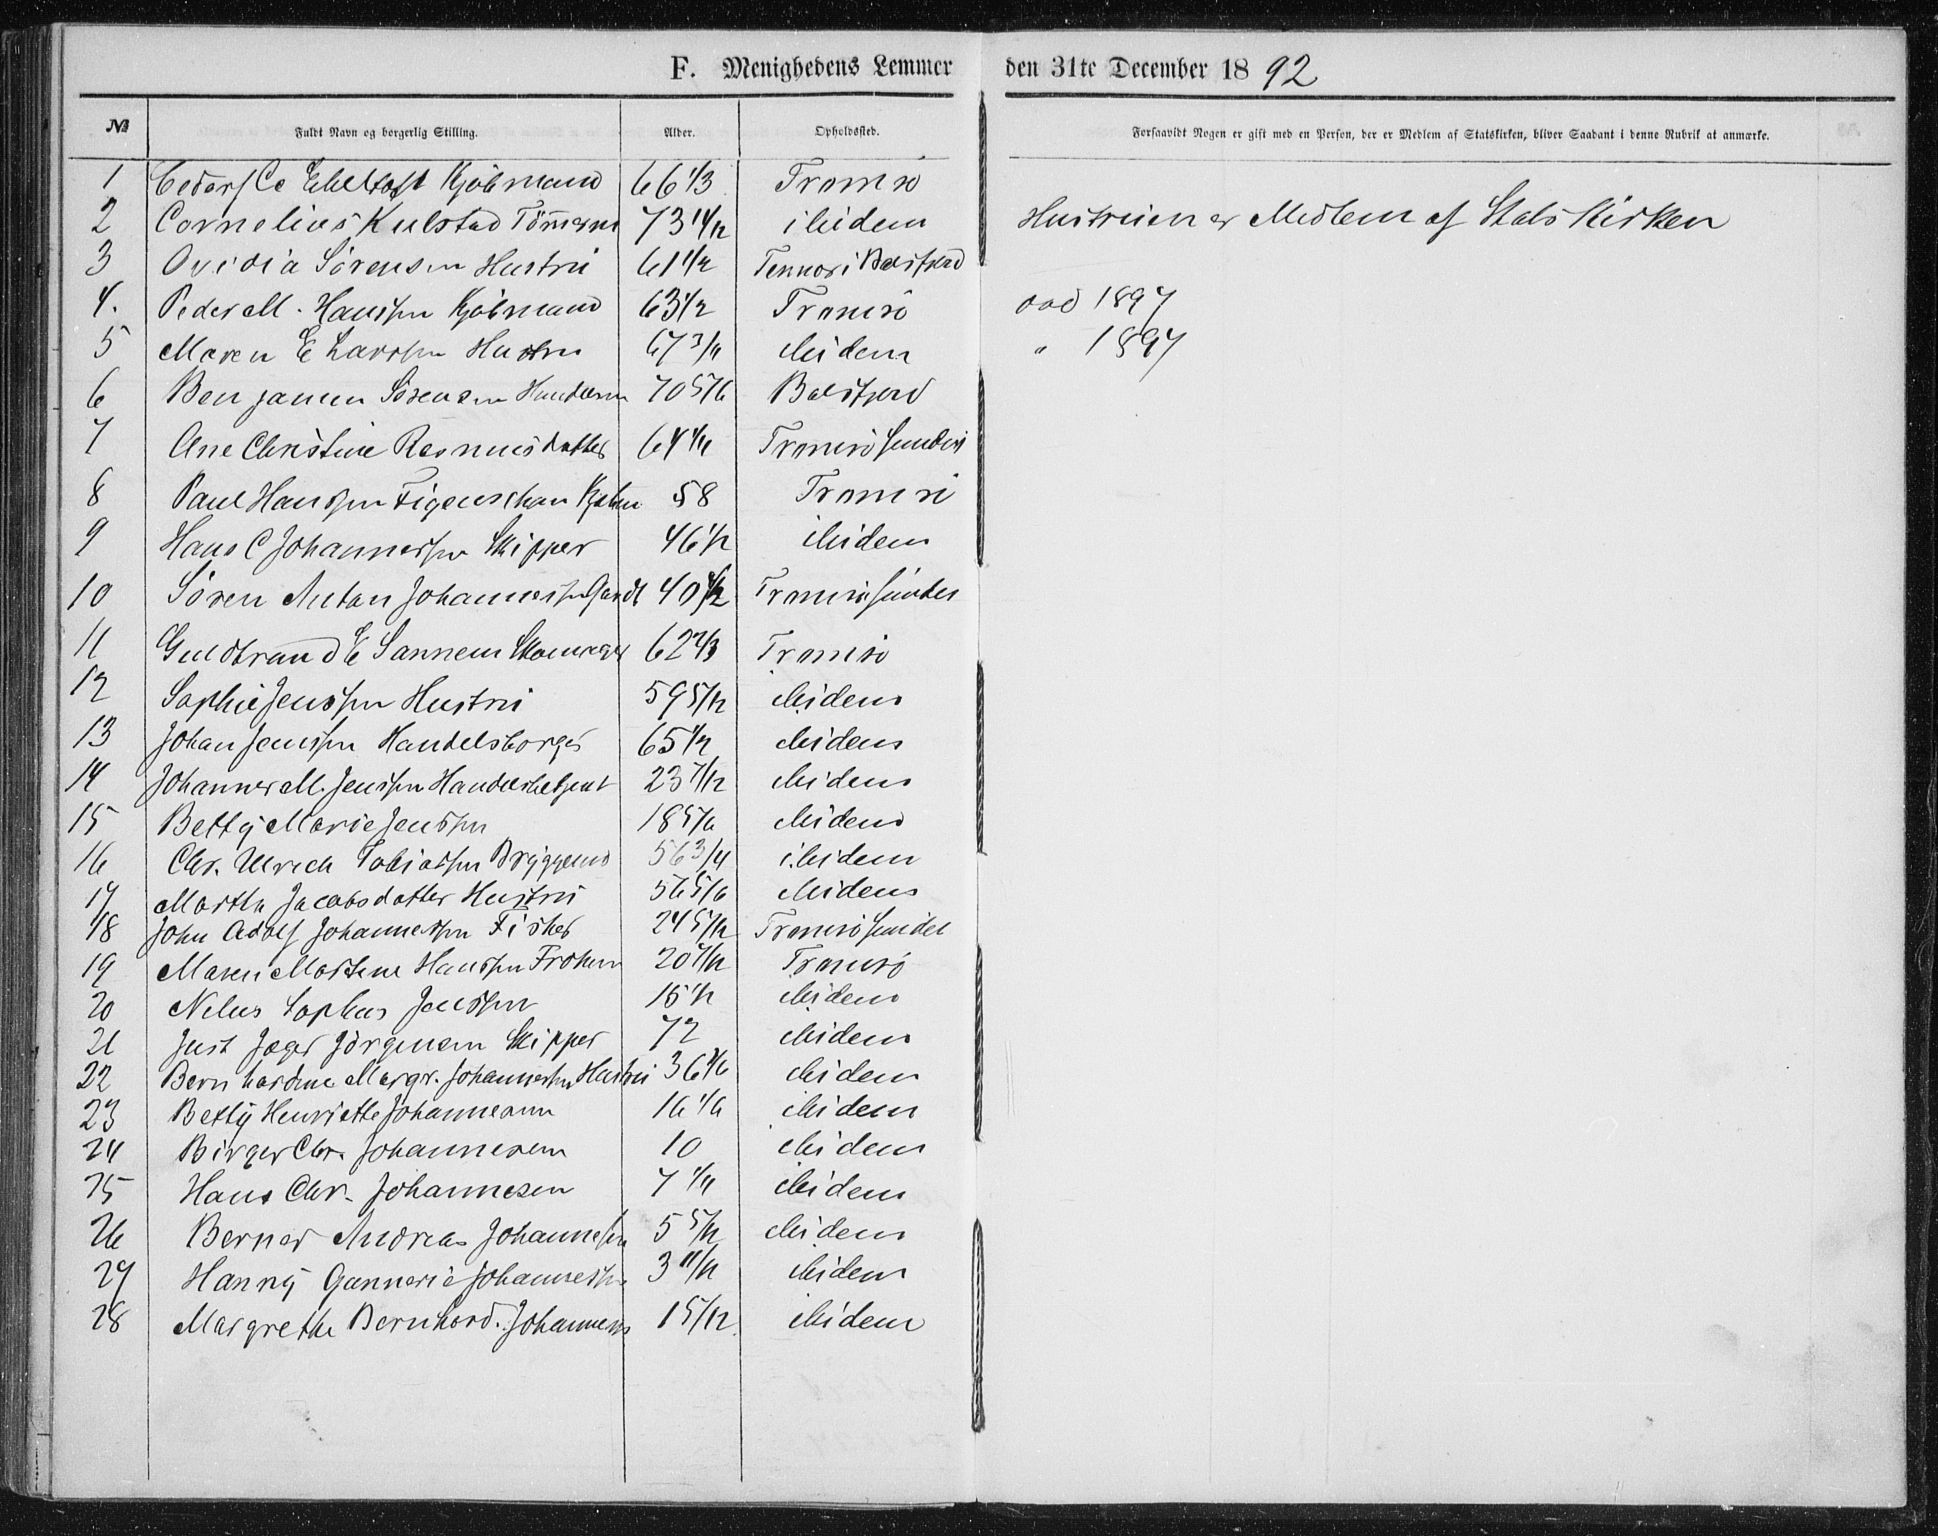 F. Menighedens Lemmer den 31te December 1892
№ Fuldt Navn og borgerlig Stilling. Alder. Opholdssted. Forsaavidt Nogen er gift med en Person, der er Medlem af Statskirken, bliver Saadant i denne Rubrik at anmærke.
1 Ebeltoft Kjøbmand 66 1/3 Tromsø
2 Cornelius Kulstad 73 ibidem Hustruen er Medlem af Statskirken
3 Ovidia Sørensen Hustru 61 1/2 Tennæs i Balsfjord
4. Peder M. Hanssen Kjøbmand 63 1/2 Tromsø død 1897
5 Maren E Larssen Hustru 67 3/4 ibidem " 1897
6 Benjamin Sørensen 70 5/6 Balsfjord
7 Ane Christine Rasmusdatter 64 1/4 Tromsøsundet
8 Paul Hanssen Figenschau 58 Tromsø
9 Hans C Johannessen Skipper 46 1/2 ibidem
10 Søren Anton Johannessen 40 1/2 Tromsøsundet
11 Guldbrand E Sannem Skomager 62 2/3 Tromsø
12 Sophie Jenssen Hustru 59 5/12 ibidem
13 Johan Jenssen Handelsborger 65 1/2 ibidem
14 Johannes M. Jenssen Handelsbetjent 23 7/12 ibidem
15 Betty Marie Jenssen 18 5/6 ibidem
16 Chr. Ulrich Tobiassen 56 3/4 ibidem
17 Martha Jacobsdatter Hustru 56 5/6 ibidem
18 John Adolf Johannessen Fisker 24 5/12 Tromsøsundet
19 Maren Martine Hanssen Frøken 20 7/12 Tromsø
20 Sophus Jenssen 15 1/2 ibidem
21 Just Jæger Jörgensen Skipper 72 ibidem
22 Bernhardine Margr. Johannessen Hustru 36 1/6 ibidem
23 Betty Henriette Johannesen 16 1/6 ibidem
24 Birger Chr. Johannesen 10 ibidem
25 Hans Chr. Johannesen 7 1/4 ibidem
26 Berner Andreas Johannesen 5 5/12 ibidem
27 Hanny Gunnerie Johannessen 3 11/12 ibidem
28 Margrethe Bernhard. Johannesen 1 5/12 ibidem